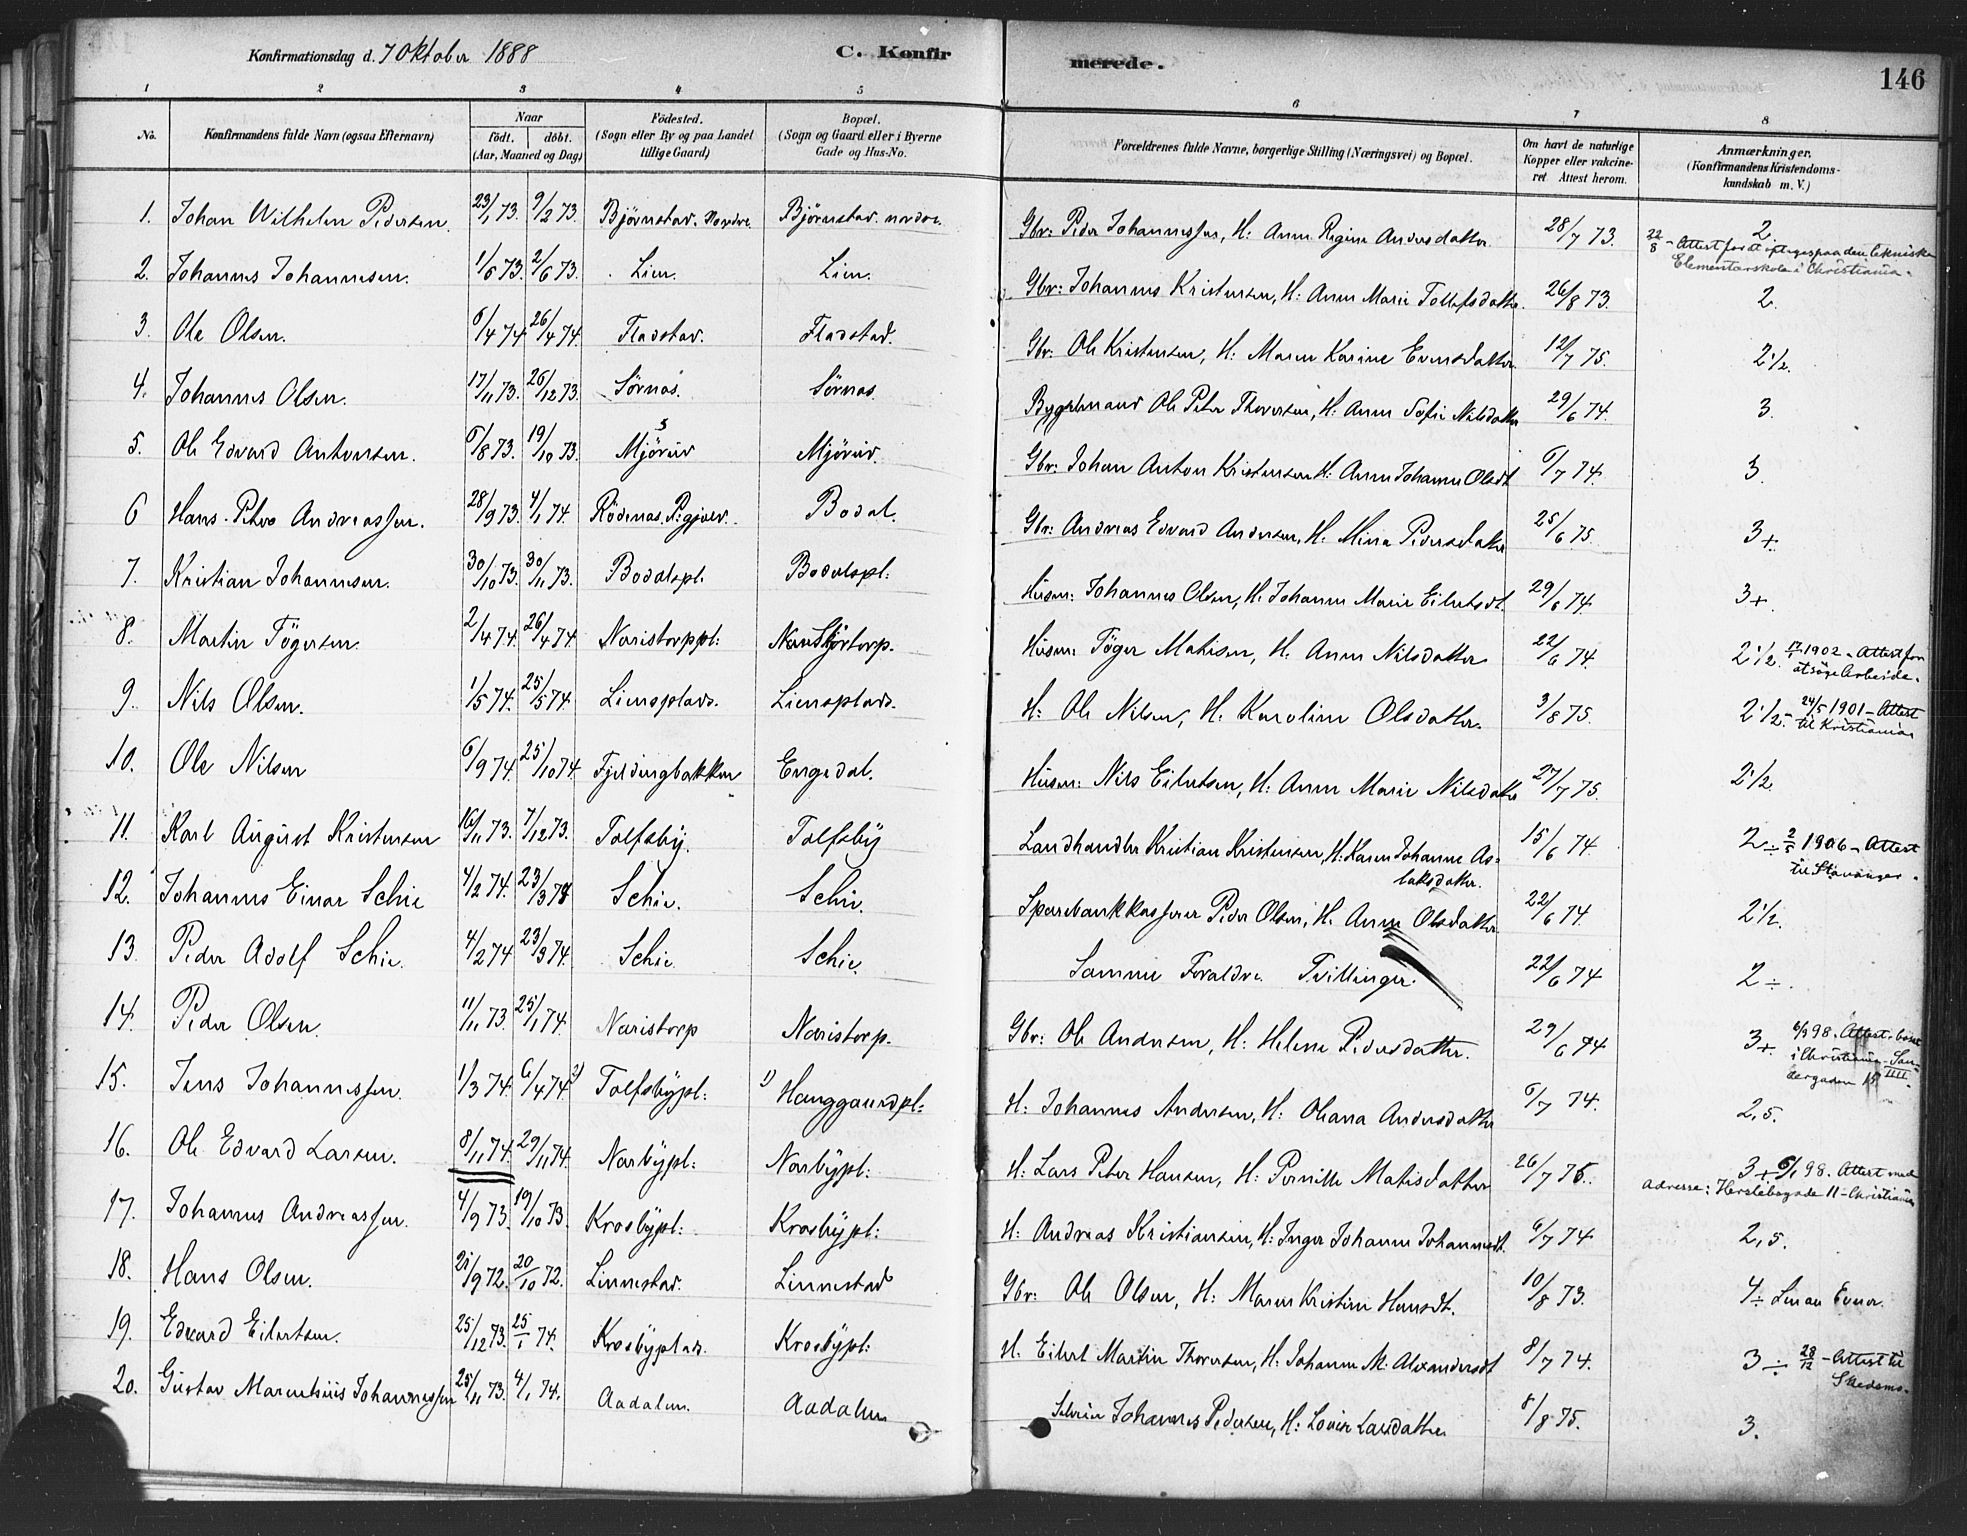 Konfirmationsdag d. 7 Oktober 1888 C. Konfirmerede. 146
1 2 3 4 5 6 7 8
No. Konfirmandens fulde Navn (ogsaa Efternavn) Naar födt. döbt. (Aar, Maaned og Dag) Födested. (Sogn eller By og paa Landet tillige Gaard) Bopæl. (Sogn og Gaard eller i Byerne Gade og Hus-No. Forældrenes fulde Navne, borgerlige Stilling (Næringsvei) og Bopæl. Om havt de naturlige Kopper eller vakcineret Attest herom. Anmærkninger. (Konfirmandens Kristendomskundskab m. V.)
1. Johan Wilhelm Pedersen. 23/1 73. 9/2 73. Bjørnstav. Nordre. Bjørnstav. nordre Gbr: Peder Johannessen, H: Anne Regine Andersdatter 28/7 73. 2. 22/8 - Attest for at optages paa den tekniske
Elementærskole i Christiania.
2. Johannes Johannesen. 1/6 73. 2/6 73. Lien. Lien. Gbr: Johannes Kristensen, H: Anne Marie Tollefsdatter 26/8 73. 2.
3. Ole Olsen. 6/4 74 26/4 74. Fladstad. Fladstad. Gbr: Ole Kristensen, H. Maren Karine Evensdatter 12/7 75. 2 1/2.
4. Johannes Olsen. 17/11 73. 26/12 73. Sörnæs. Sörnæs Bygselmand Ole Peter Thoresen, H: Anne Sofie Nilsdatter 29/6 74. 3.
5. Ole Edvard Antonsen. 6/8 73. 19/10 73. Mjörud Mjörud. Gbr: Johan Anton Kristensen H: Anne Johanne Olsdt 6/7 74. 3.
6 Hans Petter Andreassen. 28/9 73. 4/1 74. Rödenæs. Bodal. Gbr: Andreas Edvard Andersen, H: Mina Pedersdatter 25/6 75. 3+.
7. Kristian Johannesen. 30/10 73. 30/11 73. Bodalspl. Bodalspl: Husm: Johannes Olsen, H: Johanne Marie Eilertsdt. 29/6 74. 3+.
8. Martin Tögersen. 2/4 74. 26/4 74. Næristorppl: Næristorp. Husm: Töger Matisen, H: Anne Nilsdatter 22/6 74. 2 1/2. 1902 - Attest for
at söge Arbeide.
9. Nils Olsen. 1/5 74. 25/5 74. Liensplads. Liensplads. H: Ole Nilsen, H: Karoline Olsdatter. 3/8 75. 2 1/2. - 24/5 1901 - Attest
til Kristiania
10. Ole Nilsen 6/9 74. 25/10 74. Fjeldingbakken Engedal. Husm: Nils Eilertsen, H: Anne Marie Nilsdatter 27/7 75. 2 1/2
11. Karl August Kristensen 16/11 73. 7/12 73. Tolfsby. Tolfsby Landhandler Kristian Kristensen, H: Karen Johanne As-
laksdatter. 15/6 74. 2÷ 2/5 1906 - Attest
til Stavanger.
12. Johannes Einar Schie 4/2 74. 23/3 74 Schie. Schie. Sparebankkasserer Peder Olsen, H: Anne Olsdatter. 22/6 74. 2 1/2.
13. Peder Adolf Schie. 4/2 74 23/3 74. Schie. Schie. Samme Forældre. Tvillinger. 22/6 74 2÷.
14. Peder Olsen. 11/11 73. 25/1 74. Næristorp Næristorp. Gbr: Ole Andersen, H: Helene Pedersdatter. 29/6 74 3+. 98. Attest. boet
i Christiania
15. Jens Johannessen. 1/3 74. 6/4 74 Tolfsbypl: Hauggaardpl: H: Johannes Andersen, H: Oliana Andersdatter 6/7 74. 2,5.
16. Ole Edvard Larsen. 8/11 74. 29/11 74. Narbypl: Narbypl: H: Lars Peter Hansen, H: Pernille Matisdatter 26/7 75. 3+ 6/1 98. Attest med
Adresse: Herslebsgade 11 - Christiania
17. Johannes Andreassen. 4/9 73. 19/10 73. Krosbypl: Krosbypl: H: Andreas Kristiansen, H: Inger Johanne Johannesdt. 6/7 74 2,5.
18. Hans Olsen. 21/9 72. 20/10 72. Linnestad. Linnestad Gbr: Ole Olsen, H: Maren Kristine Hansdt. 10/8 73. 4÷
19. Edvard Eilertsen. 25/12 73. 25/1 74. Krosbyplads. Krosbypl: H. Eilert Martin Thoresen, H: Johanne M. Alexandersdt 8/7 74. 3÷ 28/12 - Attest til
Skedsmo.
20. Gustav Marentsius Johannessen 25/11 73. 4/1 74. Aadalen. Aadalen Johannes Pedersen, H: Lovise Larsdatter 8/8 75. 3.